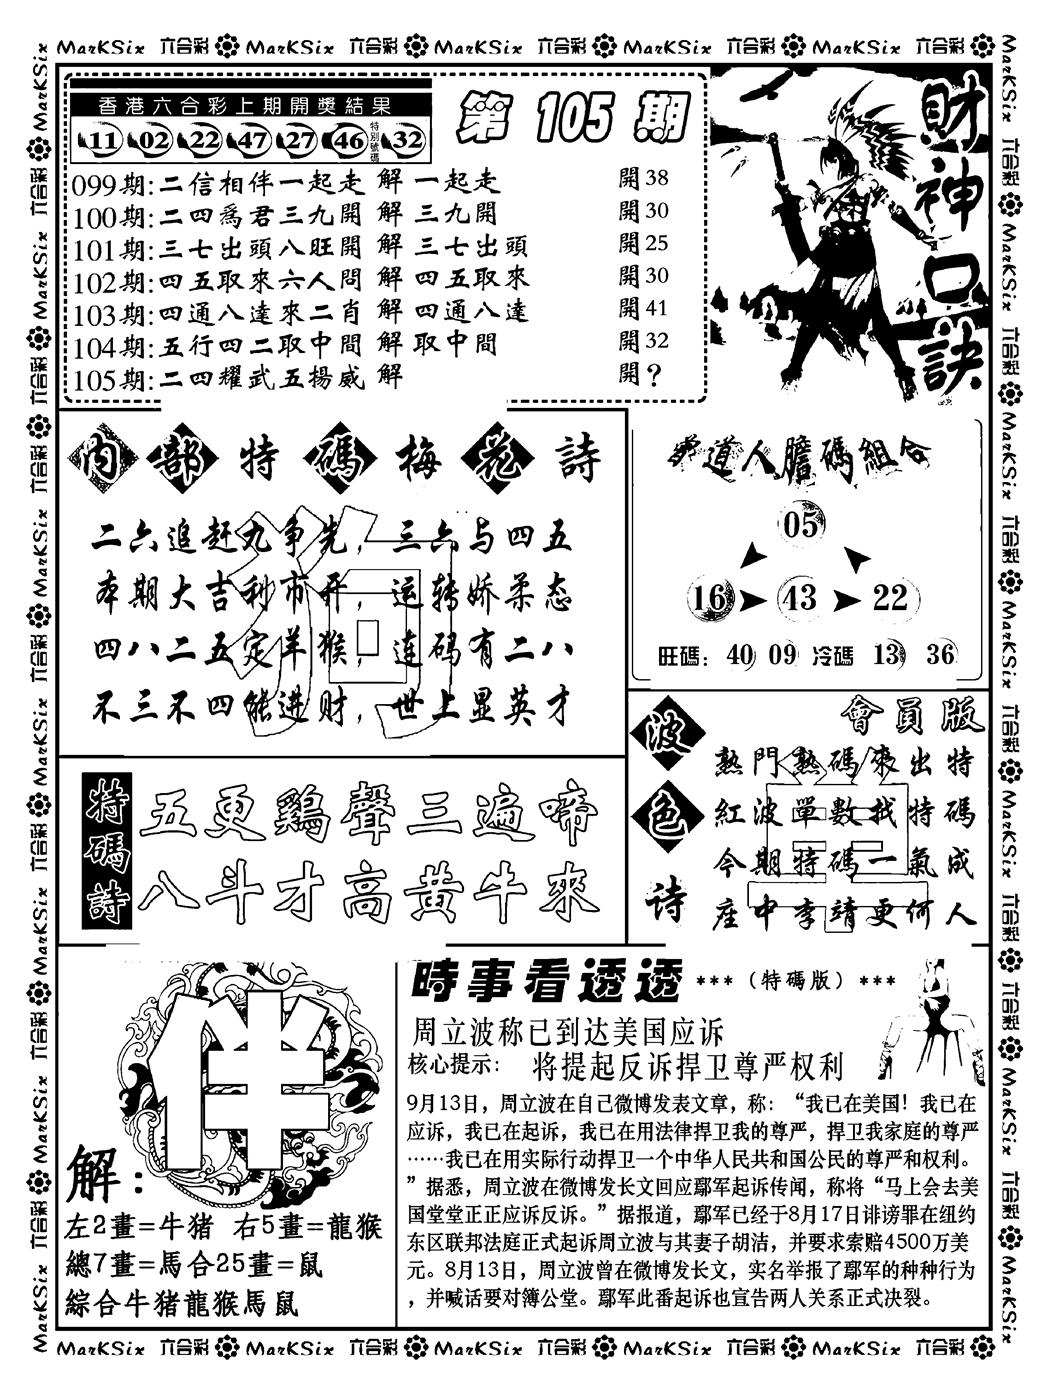 MarKSix 六合彩 MarKSix 六合彩 MarKSix 六合彩 MarKSix 六合彩 MarKSix 六合彩
香港六合彩上期開獎結果
11 02 22 47 27 46 特別號碼 32
第 105 期
099期:二信相伴一起走 解 一起走 開38
100期:二四爲君三九開 解 三九開 開30
101期:三七出頭八旺開 解 三七出頭 開25
102期:四五取來六人問 解 四五取來 開30
103期:四通八達來二肖 解 四通八達 開41
104期:五行四二取中間 解 取中間 開32
105期:二四耀武五揚威 解 開?
財神口訣
內部特碼梅花詩
狗
二六追赶丸争先，三六与四五
本期大吉利市开，运转娇柔态
四八二五定羊猴，连码有二八
不三不四能进财，世上显英才
道人膽碼組合
05
16 43 22
旺碼: 40 09 冷碼 13 36
波色诗
會員版
單
熱門熱碼來出特
紅波單數找特碼
今期特碼一氣成
座中李靖更何人
特碼詩
五更鷄聲三遍啼
八斗才高黄牛來
解:
伴
左2畫=牛猪 右5畫=龍猴
總7畫=馬合25畫=鼠
綜合牛猪龍猴馬鼠
時事看透透 ***（特碼版）***
周立波称已到达美国应诉
核心提示: 将提起反诉捍卫尊严权利
9月13日，周立波在自己微博发表文章，称：“我已在美国！我已在
应诉，我已在起诉，我已在用法律捍卫我的尊严，捍卫我家庭的尊严
……我已在用实际行动捍卫一个中华人民共和国公民的尊严和权利。
”据悉，周立波在微博发长文回应鄢军起诉传闻，称将“马上会去美
国堂堂正正应诉反诉。”据报道，鄢军已经于8月17日诽谤罪在纽约
东区联邦法庭正式起诉周立波与其妻子胡洁，并要求索赔4500万美
元。8月13日，周立波曾在微博发长文，实名举报了鄢军的种种行为
，并喊话要对簿公堂。鄢军此番起诉也宣告两人关系正式决裂。
MarKSix 六合彩 MarKSix 六合彩 MarKSix 六合彩 MarKSix 六合彩 MarKSix 六合彩